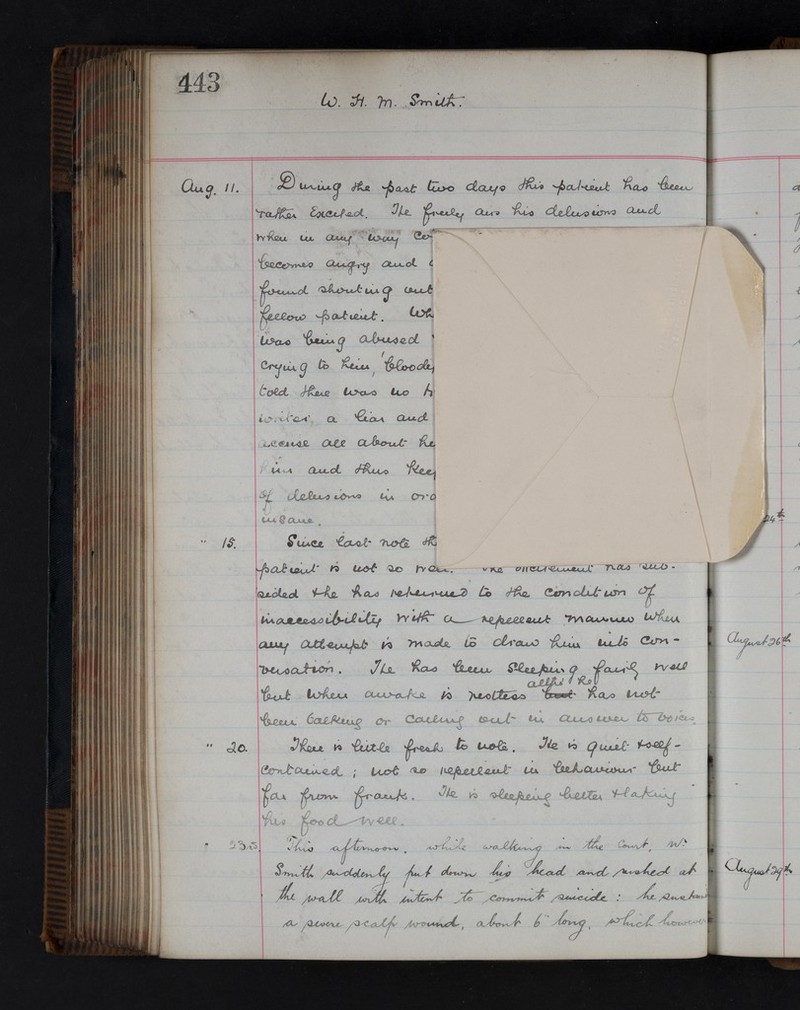 443
W. H. M. Smith.
Aug. 11. During the past two days this patient has been
rather excited. He freely airs his delusions and
when in any way
becomes angry and
found shouting out
fellow patient.
was being abused
crying to him, 'bloody
told there was no
writer, a liar and
accuse all about
him and thus
of delusions in
insane.
" 15. Since last note
patient is not so well. The excitement has sub-
sided & he has returned to the condition of
inaccessibility with a repellent manner when
any attempt is made to draw him into con-
versation. He has been sleeping fairly well
but when awake is restless altho' he has not
been talking or calling out in answer to voices
" 20. There is little fresh to note. He is quiet & self-
contained; not so repellent in behaviour but
far from frank. He is sleeping better & taking
his food well.
" 23. This afternoon, while walking in the Court, Mr
Smith suddenly put down his head and rushed at
the wall with intent to commit suicide: he
a severe scalp wound, about 6" long, which however
24th
August 26th
August 29th